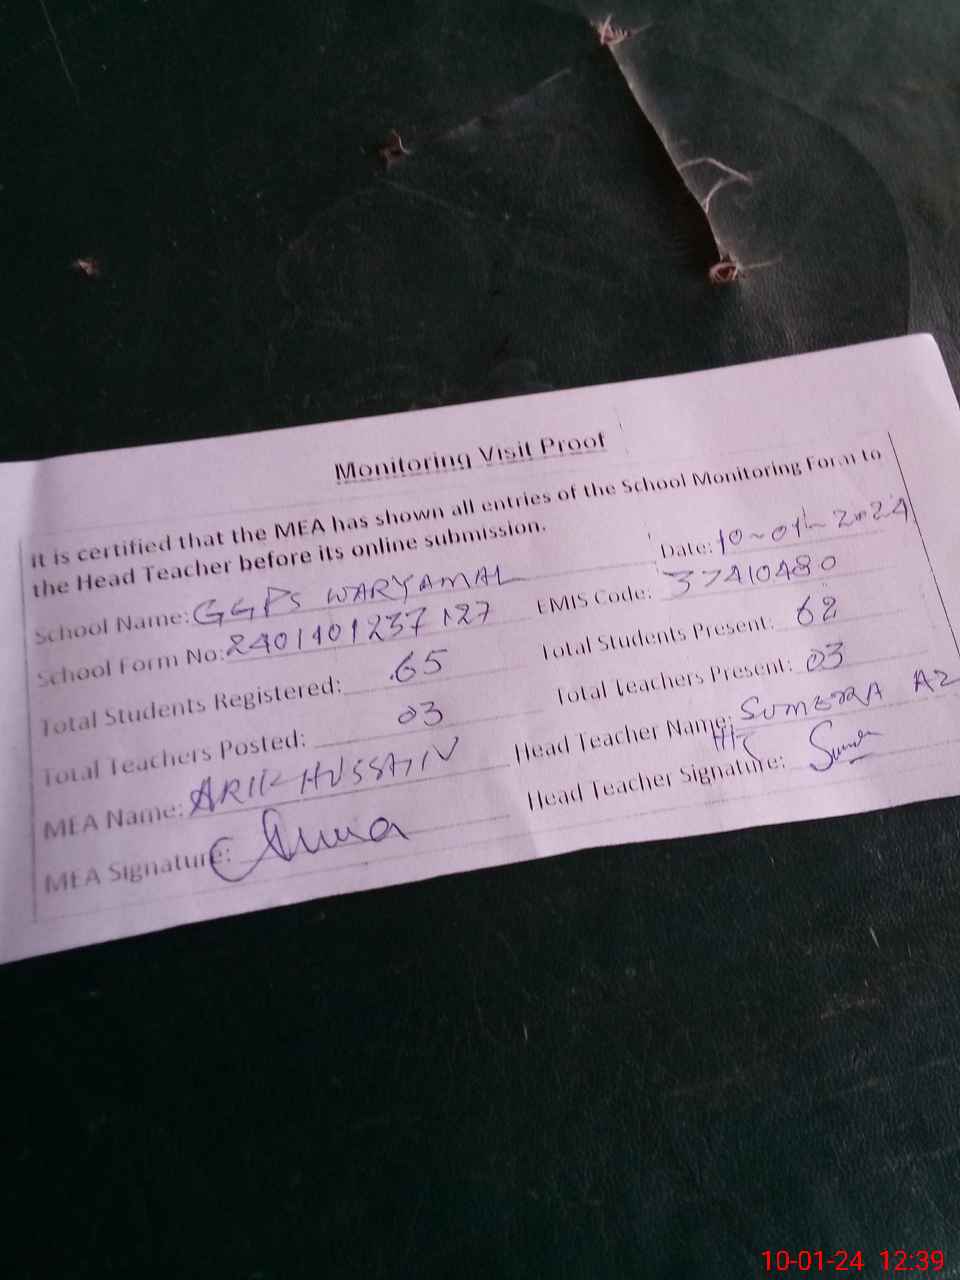 Monitoring Visit Proof
It is certified that the MEA has shown all entries of the School Monitoring Form to
the Head Teacher before its online submission.
Date: 10-01-2024
School Name: GGPS WARYAMAL
EMIS Code: 37410480
School Form No: 2401101237127
Total Students Present: 62
Total Students Registered: 65
Total Teachers Present: 03
Total Teachers Posted: 03
Head Teacher Name: SUMERRA AZ
MEA Name: HUSSAIN
Head Teacher Signature:
MEA Signature:
10-01-24 12:39